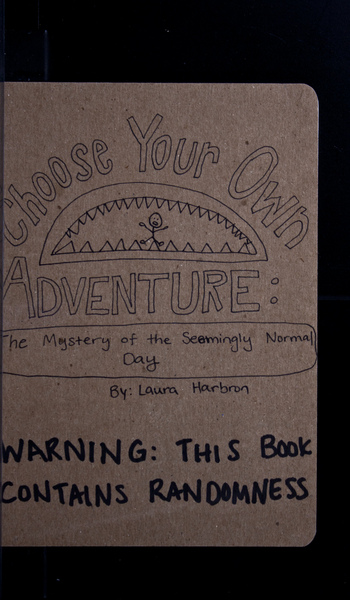 Choose Your Own
ADVENTURE:
The Mystery of the Seemingly Normal
Day
By: Laura Harbron
WARNING: THIS BOOK
CONTAINS RANDOMNESS